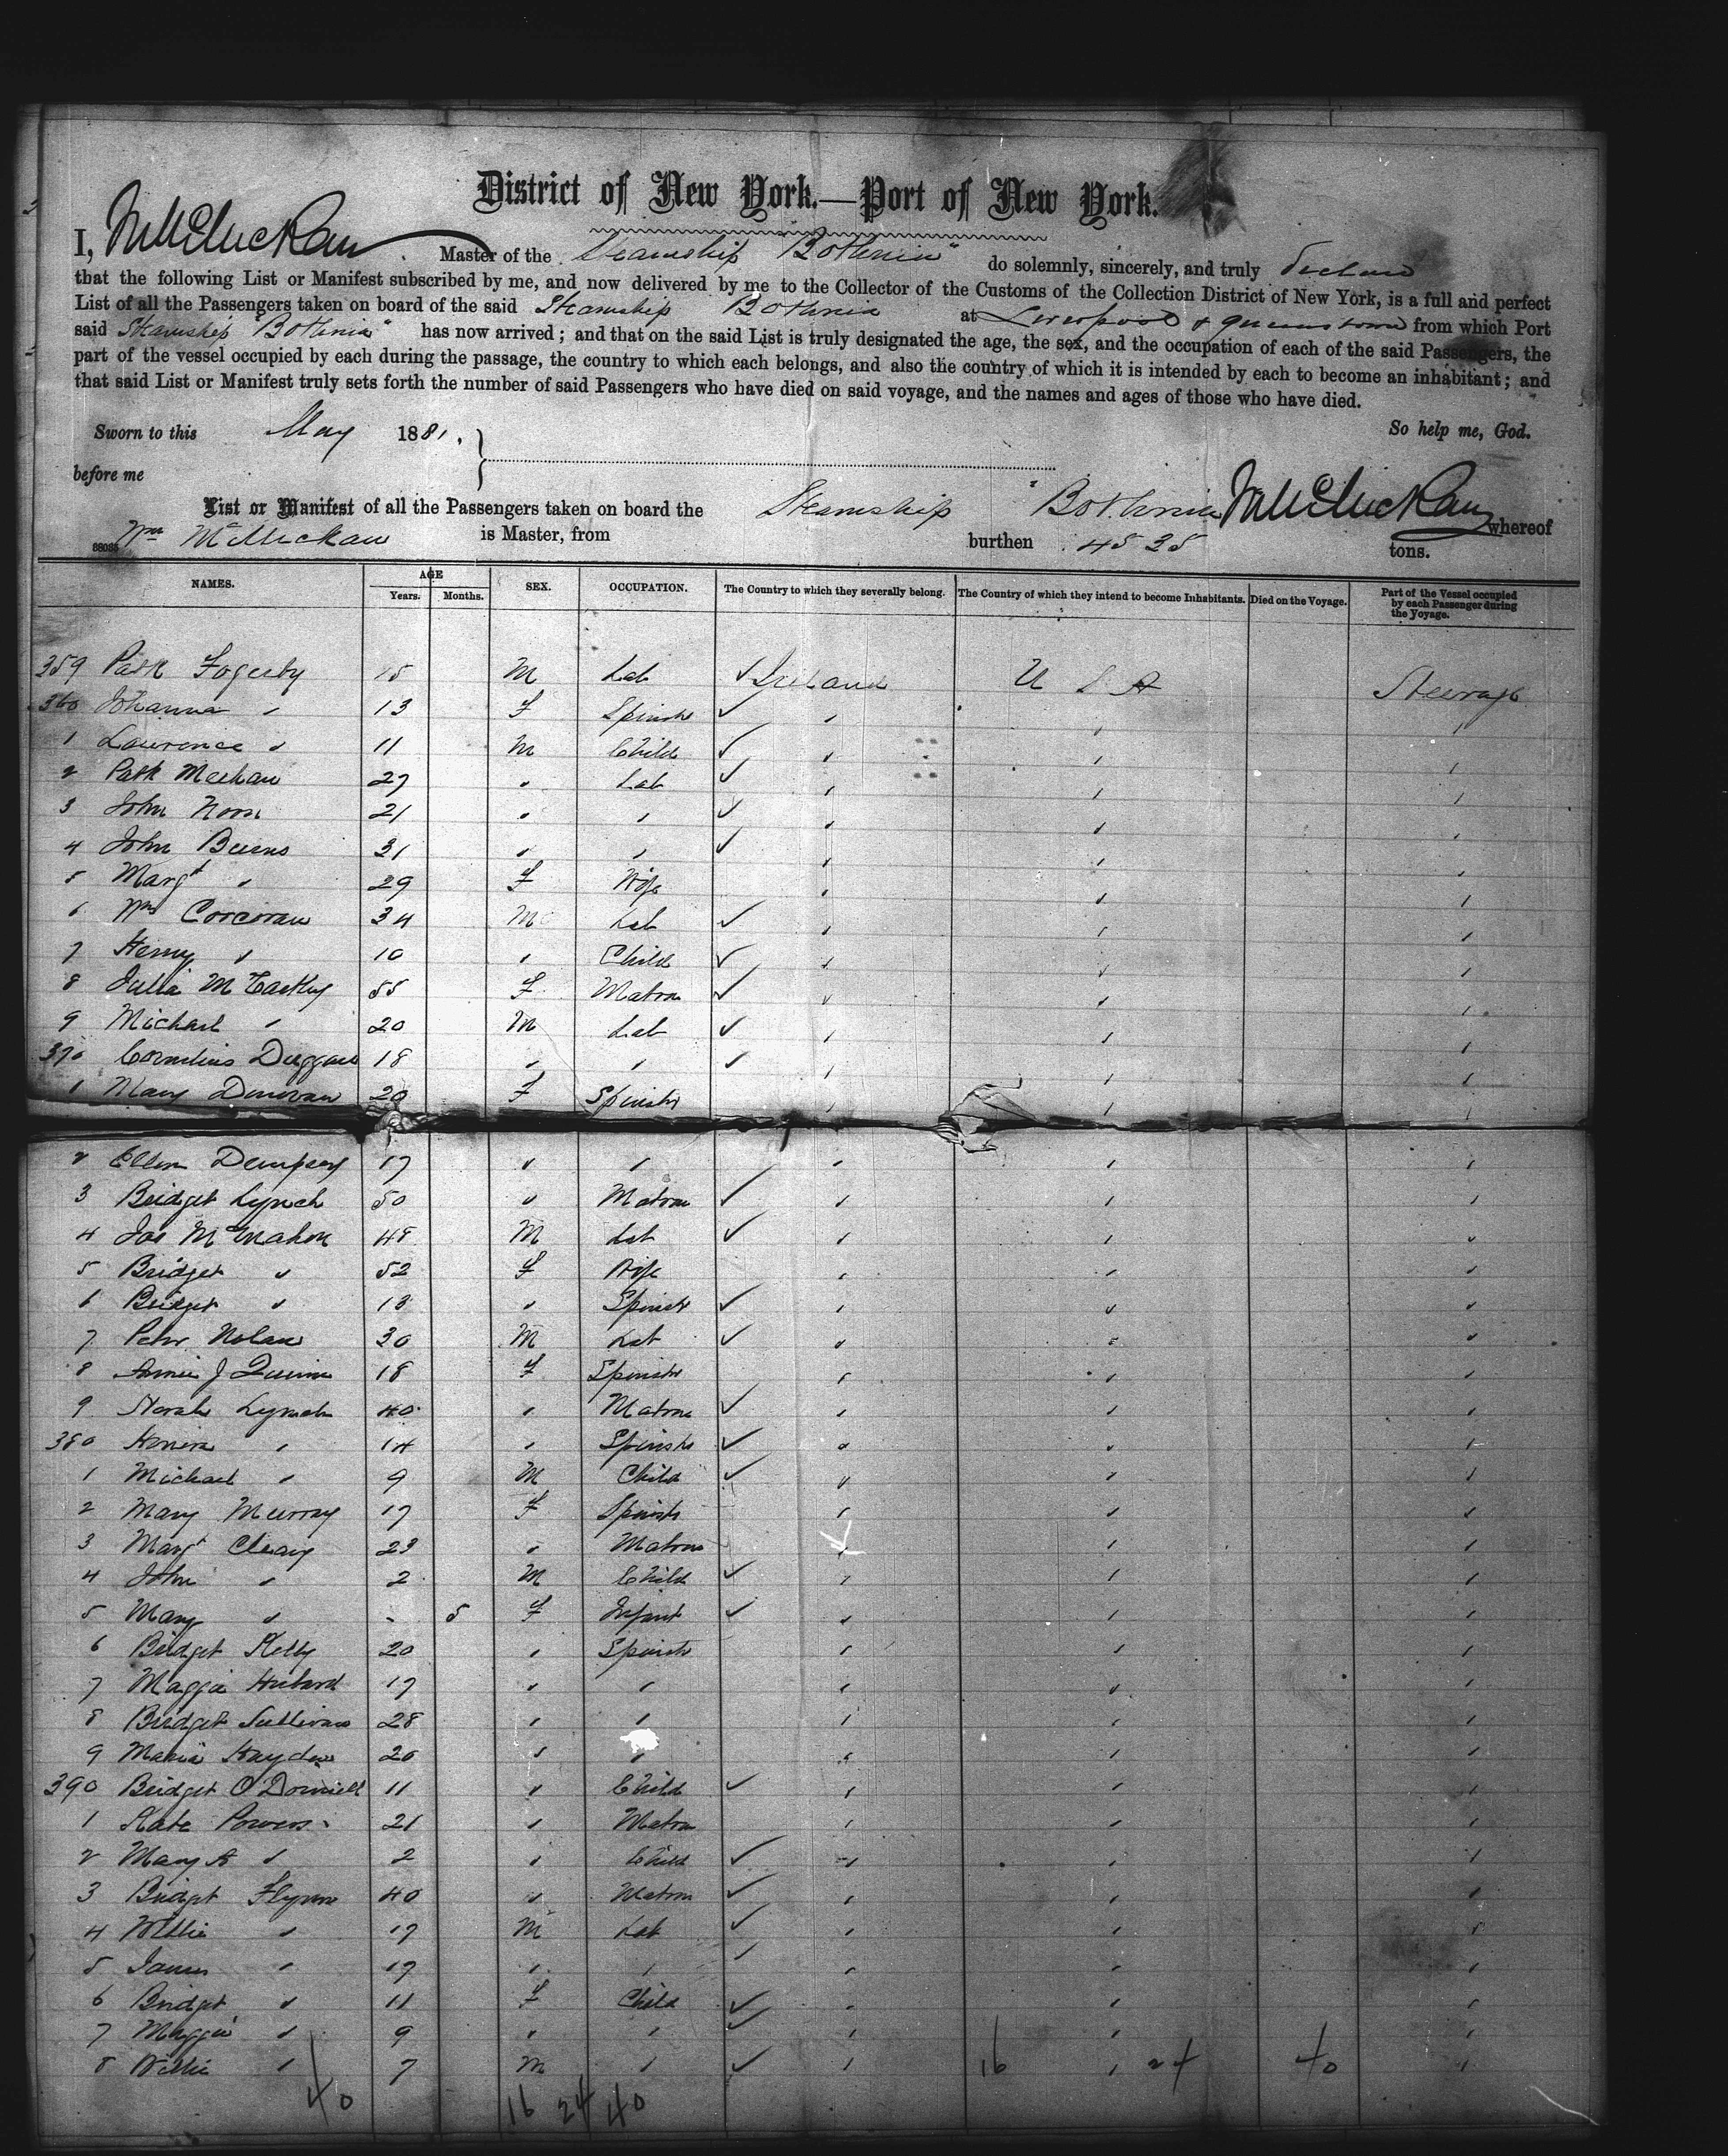 District of New York.—Port of New York.
I, Master of the Steamship "Bothnia" do solemnly, sincerely, and truly declare
that the following List or Manifest subscribed by me, and now delivered by me to the Collector of the Customs of the Collection District of New York, is a full and perfect
List of all the Passengers taken on board of the said Steamship Bothnia at Liverpool & Queenstown from which Port
said Steamship "Bothnia" has now arrived; and that on the said List is truly designated the age, the sex, and the occupation of each of the said Passengers, the
part of the vessel occupied by each during the passage, the country to which each belongs, and also the country of which it is intended by each to become an inhabitant; and
that said List or Manifest truly sets forth the number of said Passengers who have died on said voyage, and the names and ages of those who have died.
Sworn to this May 1881. So help me, God.
before me
List or Manifest of all the Passengers taken on board the Steamship "Bothnia whereof
Wm McMickan is Master, from burthen 4535 tons.
NAMES. AGE Years. Months. SEX. OCCUPATION. The Country to which they severally belong. The Country of which they intend to become Inhabitants. Died on the Voyage. Part of the Vessel occupied by each Passenger during the Voyage.
359 Patk Fogerty 15 M Lab Ireland U S A Steerage
360 Johanna " 13 F Spinstr " " "
1 Lawrence " 11 M Child " " "
2 Patk Meehan 27 " Lab " " "
3 John Noon 21 " " " " "
4 John Burns 31 " " " " "
5 Margt " 29 F Wife " " "
6 Wm Corcoran 34 M Lab " " "
7 Henry " 10 " Child " " "
8 Julia McCarthy 55 F Matron " " "
9 Michael " 20 M Lab " " "
370 Cornelius Duggan 18 " " " " "
1 Mary Donovan 20 F Spinstr " " "
2 Ellen Dempsey 17 " " " " "
3 Bridget Lynch 50 " Matron " " "
4 Jas McMahon 48 M Lab " " "
5 Bridget " 52 F Wife " " "
6 Bridget " 18 " Spinstr " " "
7 Peter Nolan 30 M Lab " " "
8 Annie J Quinn 18 F Spinstr " " "
9 Norah Lynch 40 " Matron " " "
380 " 14 " Spinstr " " "
1 Michael " 9 M Child " " "
2 Mary Murray 17 F Spinstr " " "
3 Margt Cleary 23 " Matron " " "
4 John " 2 M Child " " "
5 Mary " - 5 F Infant " " "
6 Bridget Kelly 20 " Spinstr " " "
7 Maggie 17 " " " " "
8 Bridget Sullivan 28 " " " " "
9 Maria Hayden 20 " " " " "
390 Bridget O'Donnell 11 " Child " " "
1 Kate Powers 21 " Matron " " "
2 Mary A " 2 " Child " " "
3 Bridget Flynn 40 " Matron " " "
4 Willie " 17 M Lab " " "
5 James " 17 " " " " "
6 Bridget " 11 F Child " " "
7 Maggie " 9 " " " " "
8 Willie " 7 M " " 16 " 24 40 "
40 16 24 40